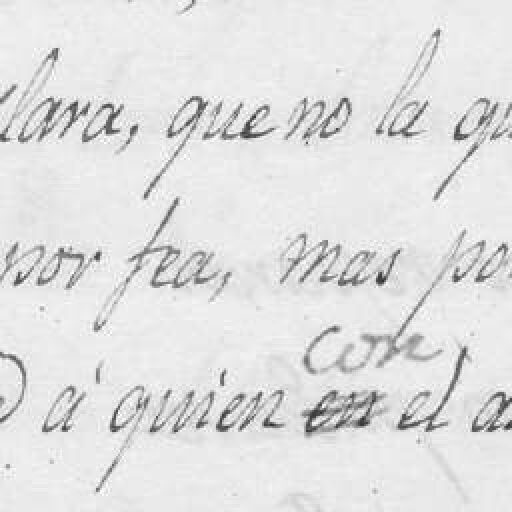 Clara, que no la qu
por fea, mas po
á quien con el a